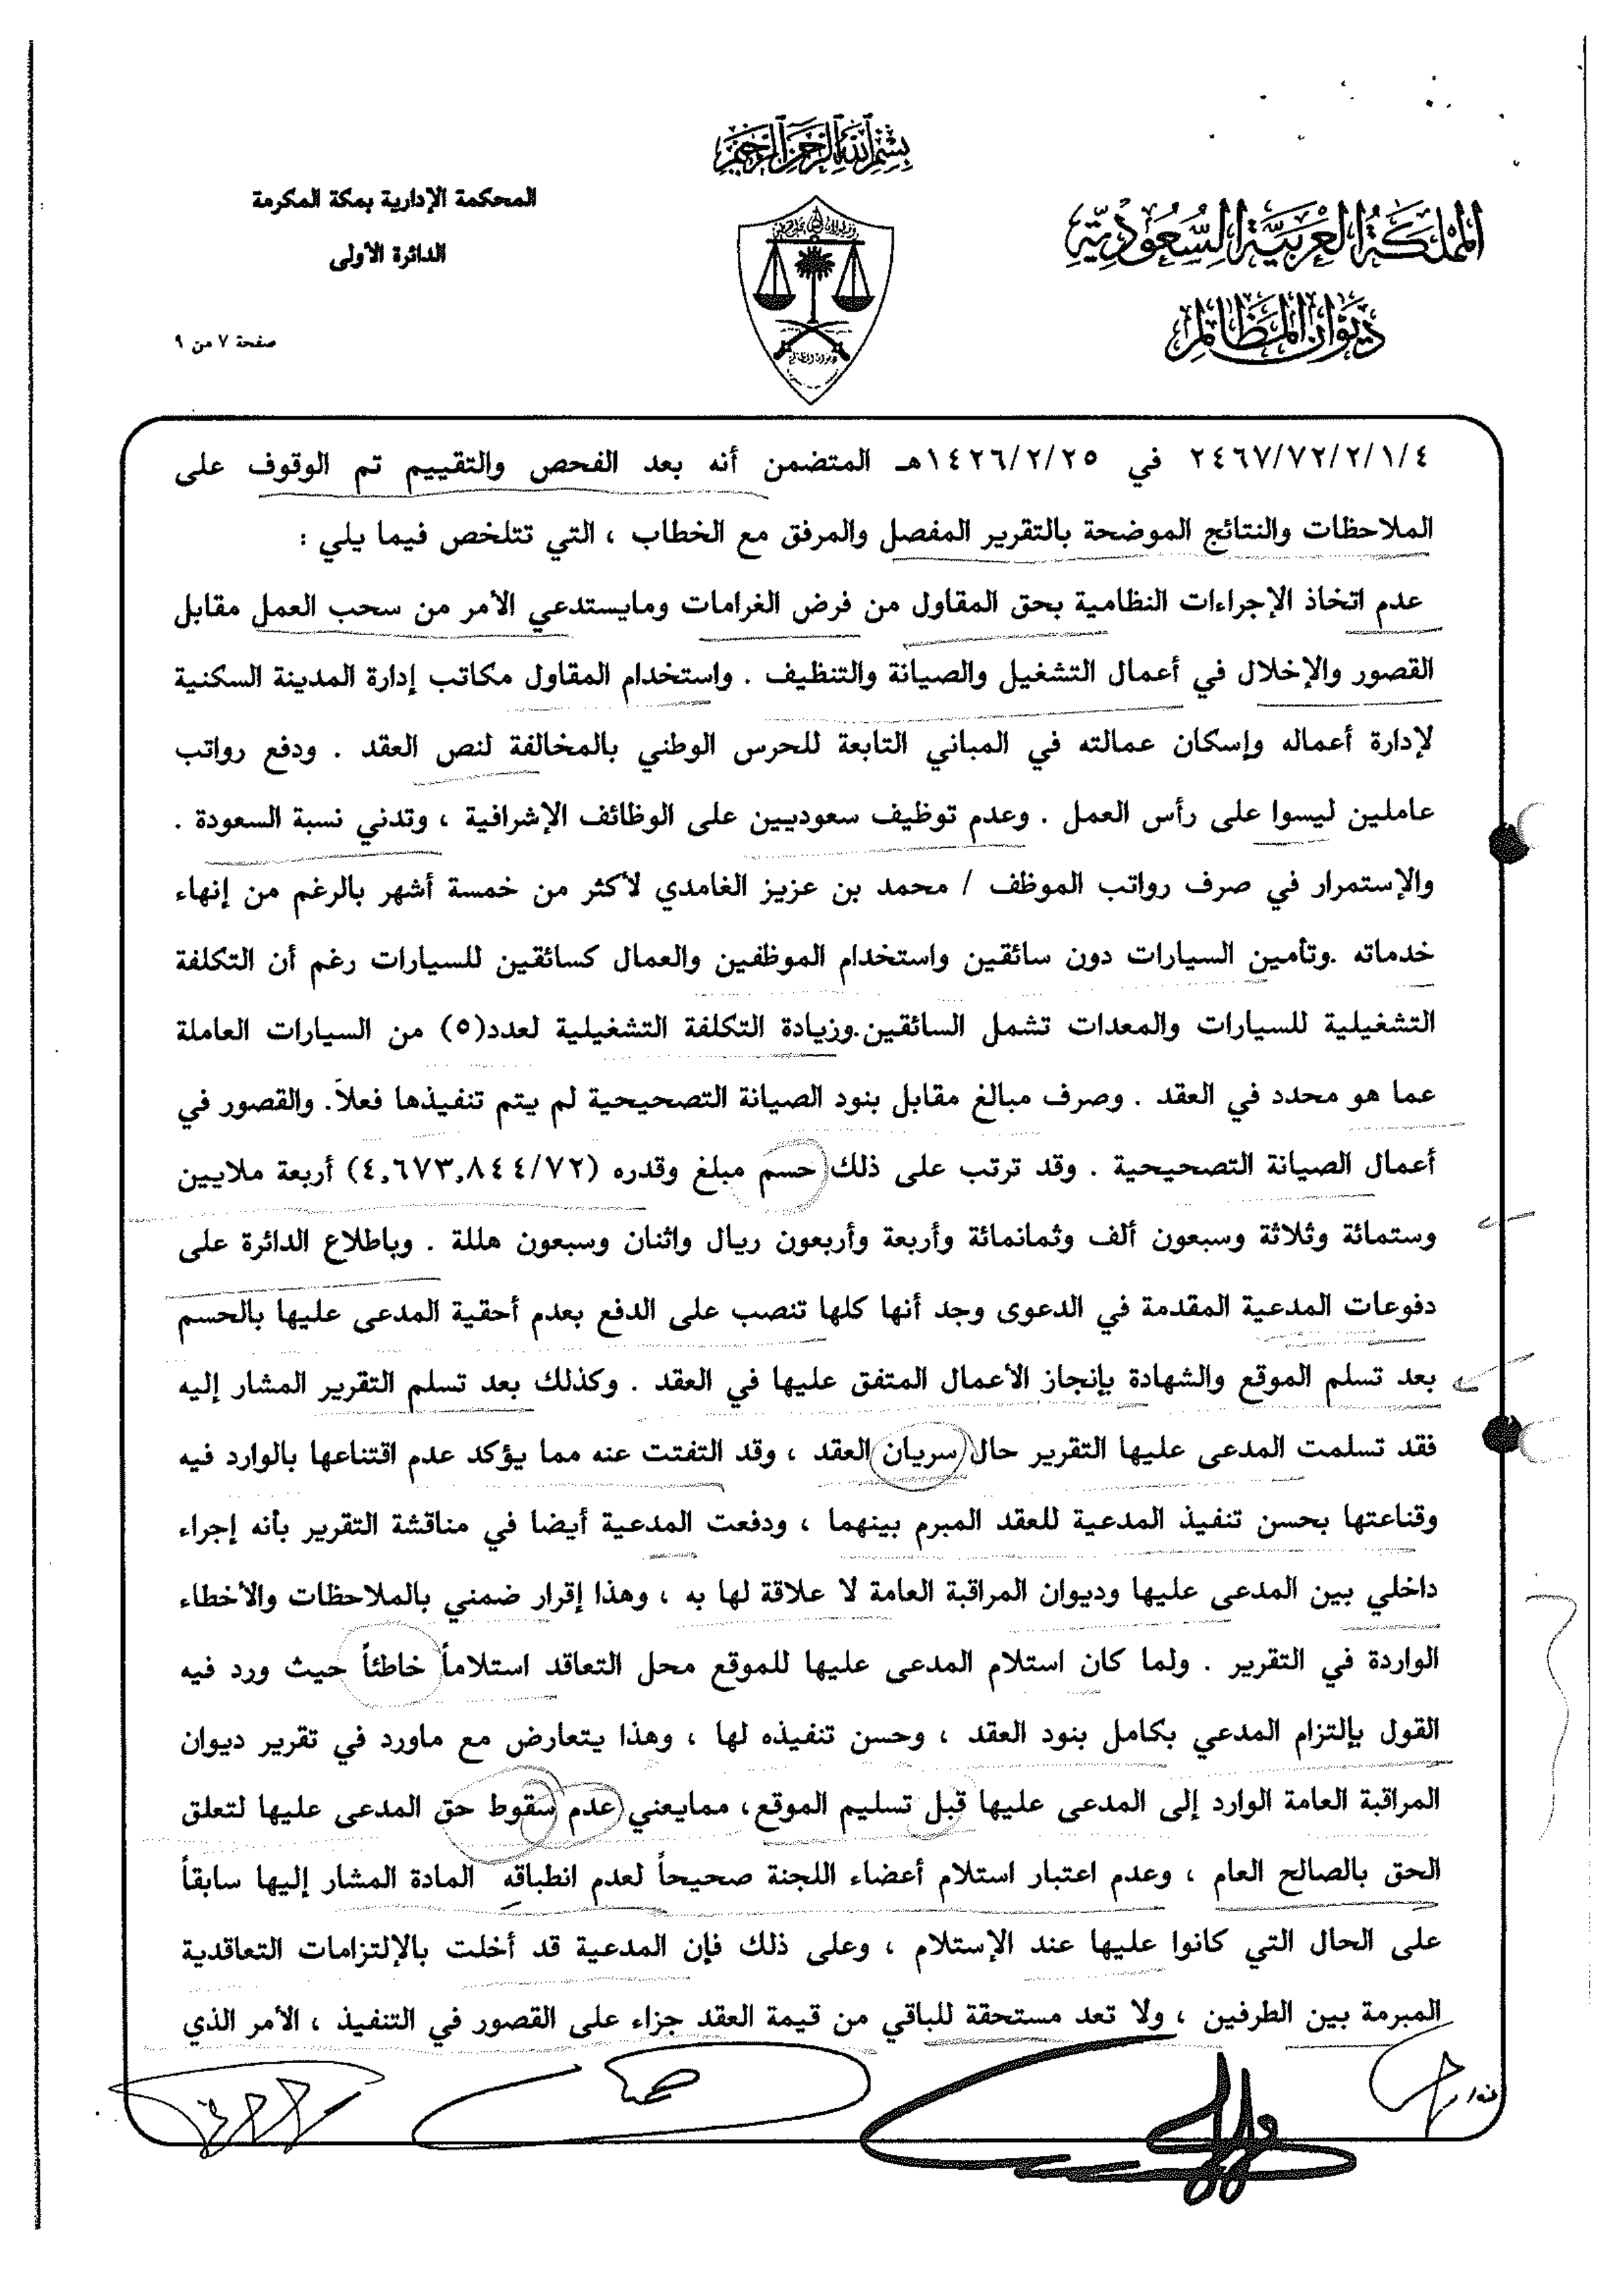 بسم الله الرحمن الرحيم
المملكة العربية السعودية
ديوان المظالم
المحكمة الإدارية بمكة المكرمة
الدائرة الأولى
صفحة ٧ من ٩
٢٤٦٧/٧٢/٢/١/٤ في ١٤٢٦/٢/٢٥هـ المتضمن أنه بعد الفحص والتقييم تم الوقوف على
الملاحظات والنتائج الموضحة بالتقرير المفصل والمرفق مع الخطاب ، التي تتلخص فيما يلي :
عدم اتخاذ الإجراءات النظامية بحق المقاول من فرض الغرامات ومايستدعي الأمر من سحب العمل مقابل
القصور والإخلال في أعمال التشغيل والصيانة والتنظيف . واستخدام المقاول مكاتب إدارة المدينة السكنية
لإدارة أعماله وإسكان عمالته في المباني التابعة للحرس الوطني بالمخالفة لنص العقد . ودفع رواتب
عاملين ليسوا على رأس العمل . وعدم توظيف سعوديين على الوظائف الإشرافية ، وتدني نسبة السعودة .
والإستمرار في صرف رواتب الموظف / محمد بن عزيز الغامدي لأكثر من خمسة أشهر بالرغم من إنهاء
خدماته .وتأمين السيارات دون سائقين واستخدام الموظفين والعمال كسائقين للسيارات رغم أن التكلفة
التشغيلية للسيارات والمعدات تشمل السائقين.وزيادة التكلفة التشغيلية لعدد(٥) من السيارات العاملة
عما هو محدد في العقد . وصرف مبالغ مقابل بنود الصيانة التصحيحية لم يتم تنفيذها فعلاً. والقصور في
أعمال الصيانة التصحيحية . وقد ترتب على ذلك حسم مبلغ وقدره (٤,٦٧٣,٨٤٤/٧٢) أربعة ملايين
وستمائة وثلاثة وسبعون ألف وثمانمائة وأربعة وأربعون ريال واثنان وسبعون هللة . وباطلاع الدائرة على
دفوعات المدعية المقدمة في الدعوى وجد أنها كلها تنصب على الدفع بعدم أحقية المدعى عليها بالحسم
بعد تسلم الموقع والشهادة بإنجاز الأعمال المتفق عليها في العقد . وكذلك بعد تسلم التقرير المشار إليه
فقد تسلمت المدعى عليها التقرير حال سريان العقد ، وقد التفتت عنه مما يؤكد عدم اقتناعها بالوارد فيه
وقناعتها بحسن تنفيذ المدعية للعقد المبرم بينهما ، ودفعت المدعية أيضا في مناقشة التقرير بأنه إجراء
داخلي بين المدعى عليها وديوان المراقبة العامة لا علاقة لها به ، وهذا إقرار ضمني بالملاحظات والأخطاء
الواردة في التقرير . ولما كان استلام المدعى عليها للموقع محل التعاقد استلاماً خاطئاً حيث ورد فيه
القول بإلتزام المدعي بكامل بنود العقد ، وحسن تنفيذه لها ، وهذا يتعارض مع ماورد في تقرير ديوان
المراقبة العامة الوارد إلى المدعى عليها قبل تسليم الموقع، ممايعني عدم سقوط حق المدعى عليها لتعلق
الحق بالصالح العام ، وعدم اعتبار استلام أعضاء اللجنة صحيحاً لعدم انطباقه المادة المشار إليها سابقاً
على الحال التي كانوا عليها عند الإستلام ، وعلى ذلك فإن المدعية قد أخلت بالإلتزامات التعاقدية
المبرمة بين الطرفين ، ولا تعد مستحقة للباقي من قيمة العقد جزاء على القصور في التنفيذ ، الأمر الذي